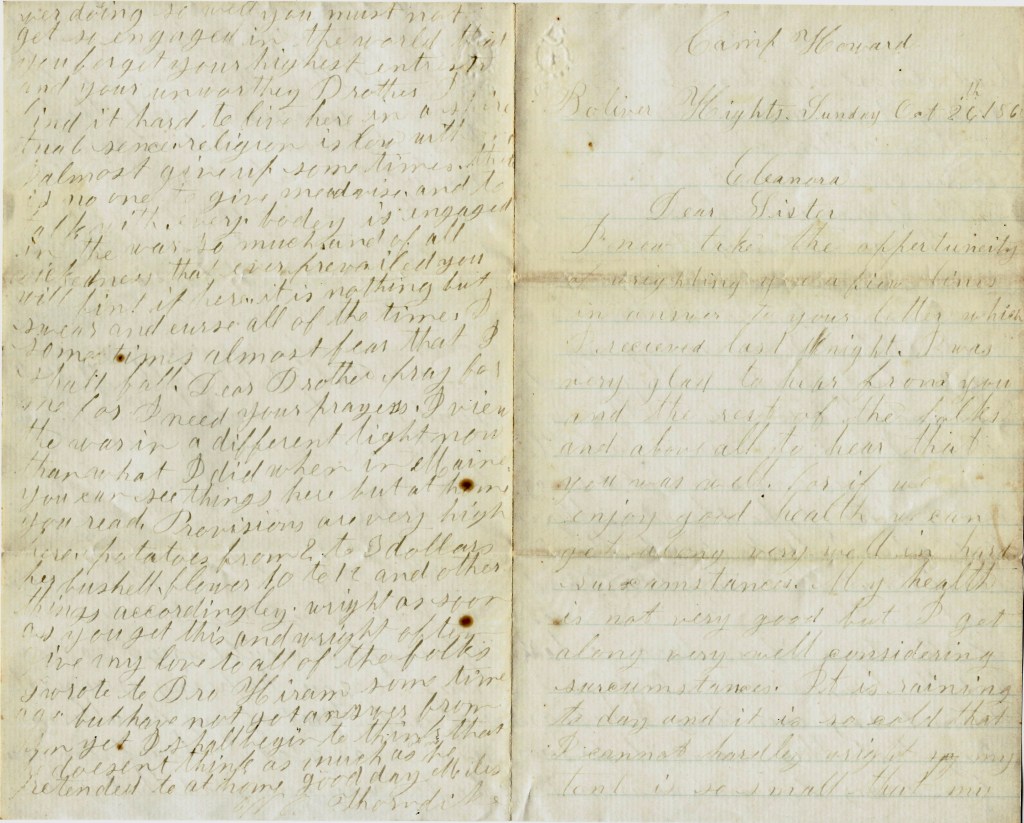 ver doing so well you must not
get so engaged in the world that
you forget your highest intrests
and your unworthey Brother I
find it hard to live here in a spire
tual sence religion is low with
I almost give up some times
is no one to give me advise and to
talk with every bodey is engaged
in the war so much and of all
wickedness that ever prevailed you
will find it here it is nothing but
swear and curse all of the times I
some times almost fear that I
shall fall. Dear Brother pray for
me for I need your prayers. I view
the war in a different light now
than what I did when in Maine.
you can see things here but at home
you read. Provisions are very high
here potatoes from 2 to 3 dollars
by bushell flower 10 to 11 and other
things accordingley. wright as soon
as you get this and wright often
give my love to all of the folks
I wrote to Bro Hiram some time
ago but have not got answer from
him yet I shall begin to think that
he doesent think as much as he
pretended to at home good day Miles
Thorndik
Camp Howard
Boliver Hights. Sunday Oct 26th 186
Eleanora
Dear Sister
I now take the oppertunity
of wrighting you a few lines
in answer to your letter which
I recieved last night. I was
very glad to hear from you
and the rest of the folks
and above all to hear that
you was well. for if we
enjoy good health we can
get along very well in hard
surcumstances. My health
is not very good but I get
along very well considering
surcumstances. It is raining
to day and it is so cold that
I cannot hardley wright my
tent is so small that my